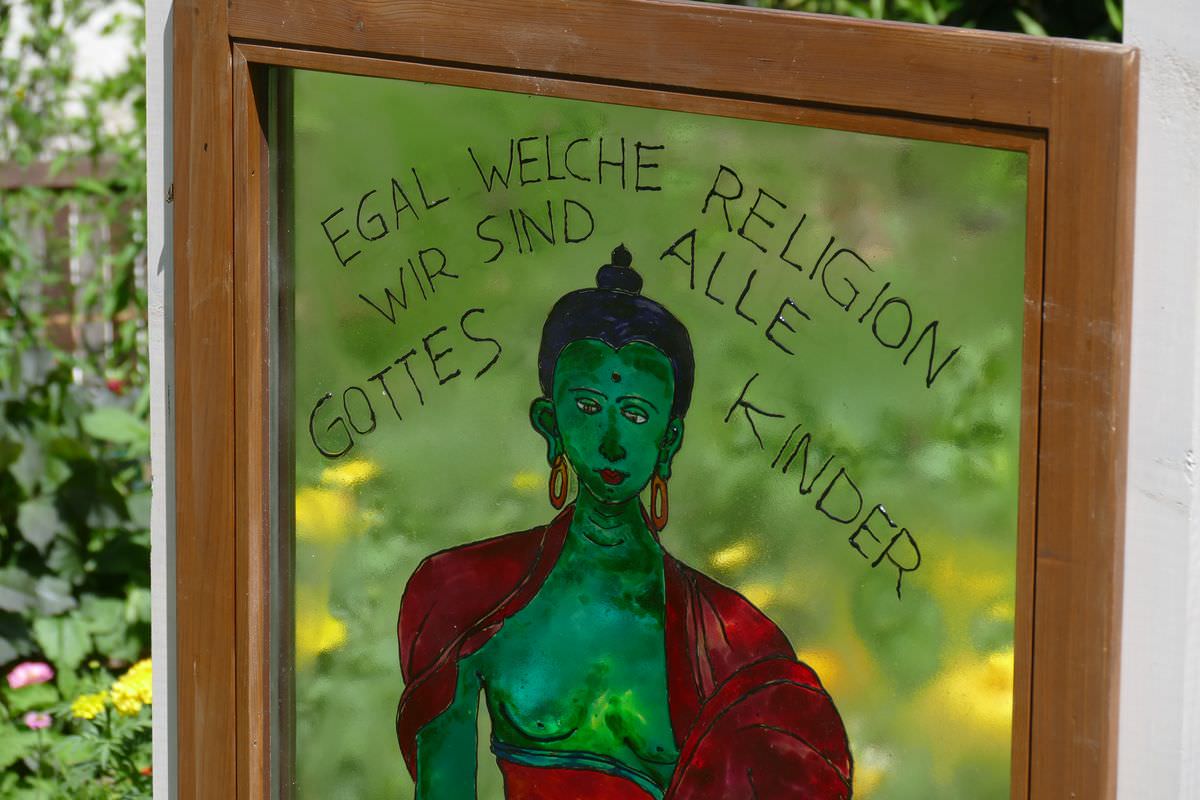 EGAL WELCHE RELIGION
WIR SIND ALLE
GOTTES KINDER